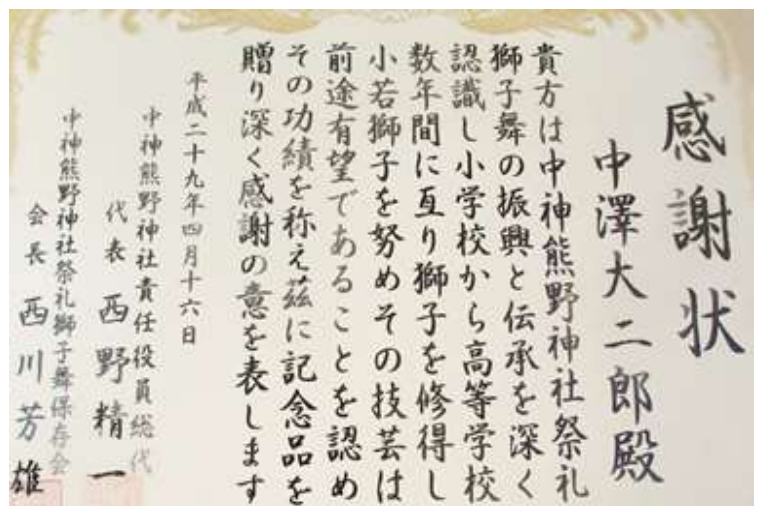 感謝状
中澤大二郎殿
貴方は中神熊野神社祭礼
獅子舞の振興と伝承を深く
認識し小学校から高等学校
数年間に亙り獅子を修得し
小若獅子を努めその技芸は
前途有望であることを認め
その功績を称え茲に記念品を
贈り深く感謝の意を表します
平成二十九年四月十六日
中神熊野神社責任役員総代
代表 西野精一
中神熊野神社祭礼獅子舞保存会
会長 西川芳雄